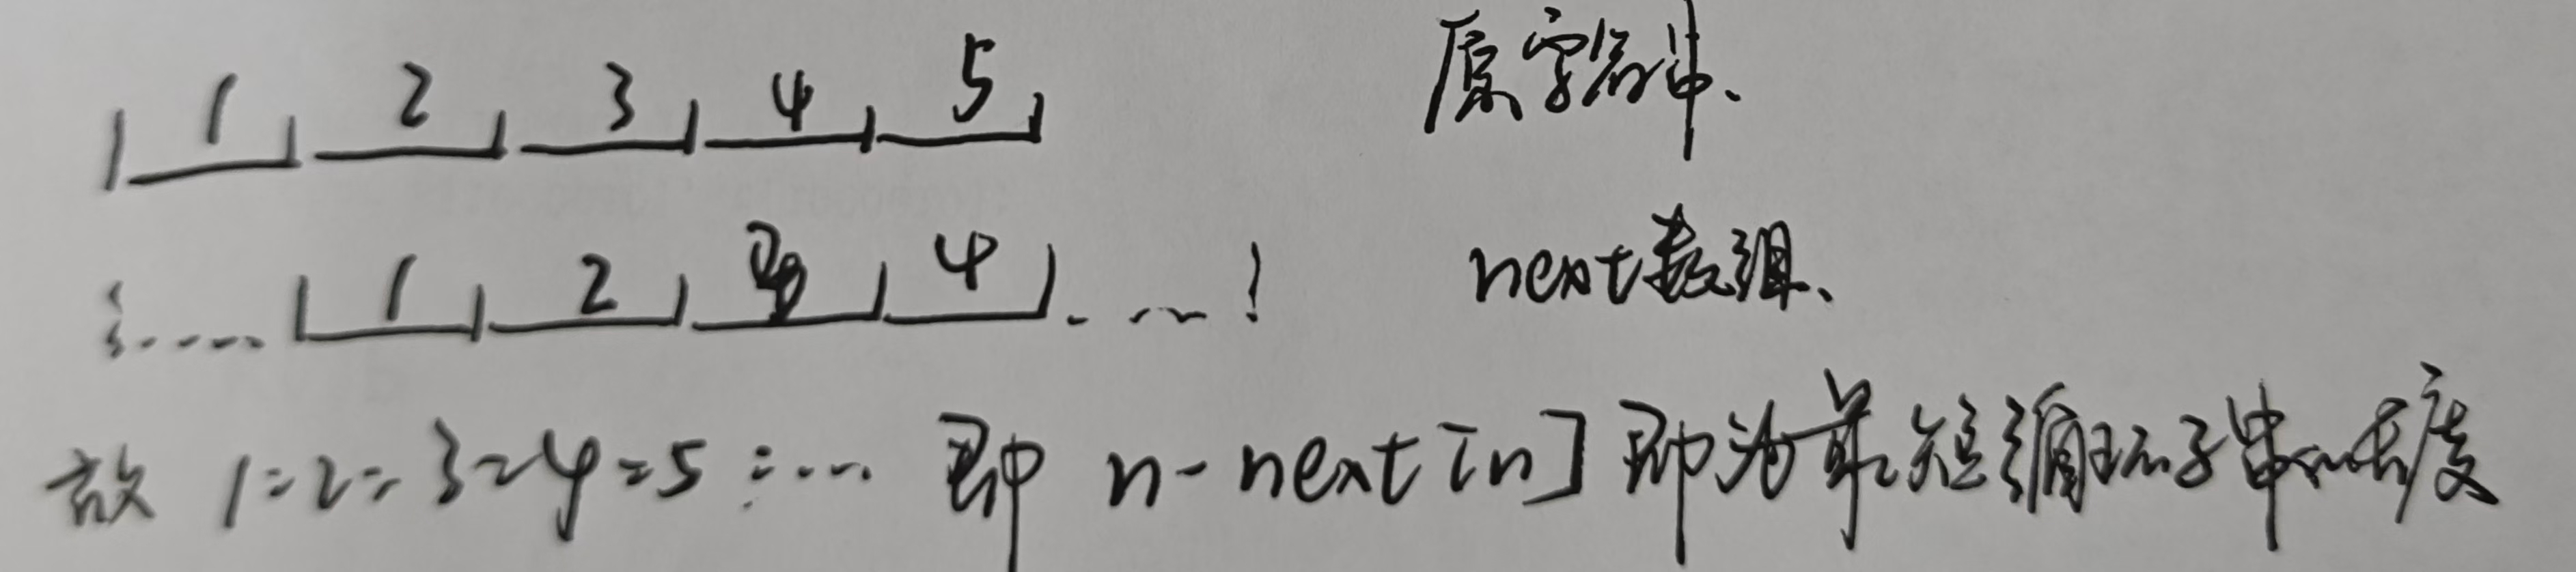 1 2 3 4 5 原字符串.
1 2 3 4 next数组.
故 1=2=3=4=5 :.... 即 n-next[n] 即为最短循环子串的长度